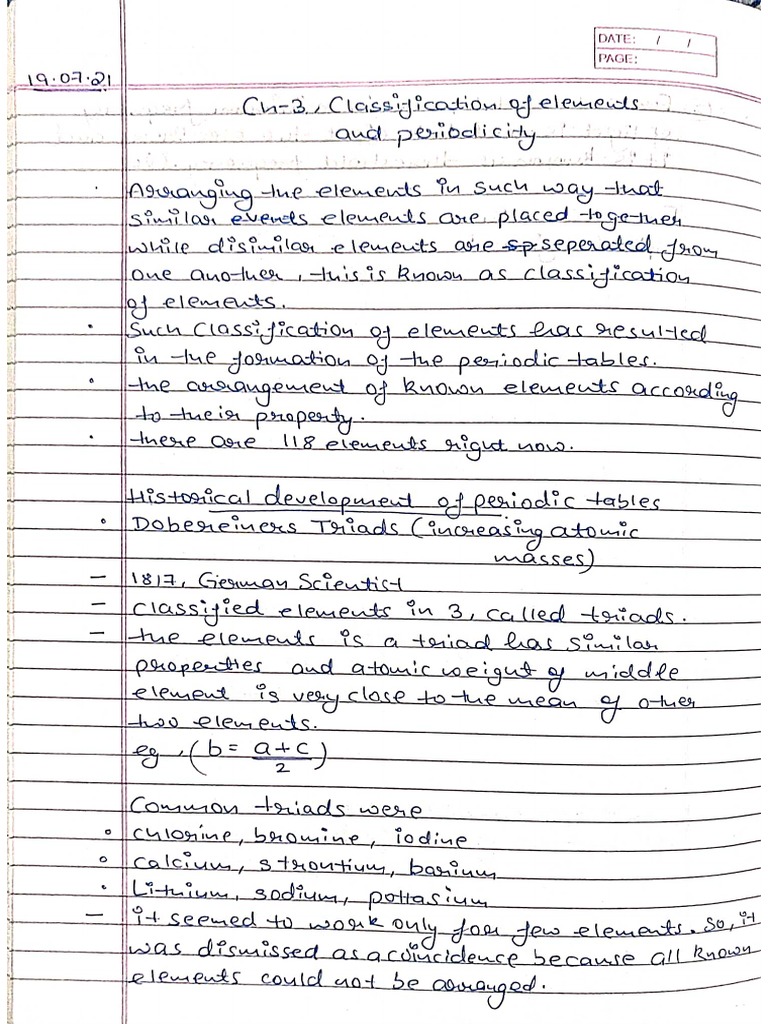 DATE: / /
PAGE:
19.07.21
Ch-3, Classification of elements
and periodicity
Arranging the elements in such way that
similar events elements are placed together
while disimilar elements are sp seperated from
one another, this is known as classification
of elements.
Such classification of elements has resulted
in the formation of the periodic tables.
the arrangement of known elements according
to their property.
there are 118 elements right now.
Historical development of periodic tables
Dobereiners Triads (increasing atomic
masses)
- 1817, German Scientist
- classified elements in 3, called triads.
- the elements is a triad has similar
properties and atomic weight of middle
element is very close to the mean of other
two elements.
eg, (b = a+c/2)
Common triads were
chlorine, bromine, iodine
calcium, strontium, barium
Lithium, sodium, pottasium
- it seemed to work only for few elements. So, it
was dismissed as a coincidence because all known
elements could not be arranged.